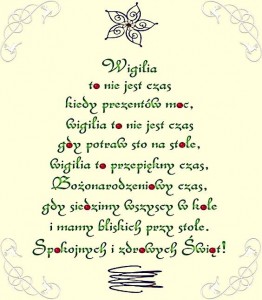 Wigilia
to nie jest czas
kiedy prezentów moc,
wigilia to nie jest czas
gdy potraw sto na stole,
wigilia to przepiękny czas,
Bożonarodzeniowy czas,
gdy siedzimy wszyscy w kole
i mamy bliskich przy stole.
Spokojnych i zdrowych Świąt!